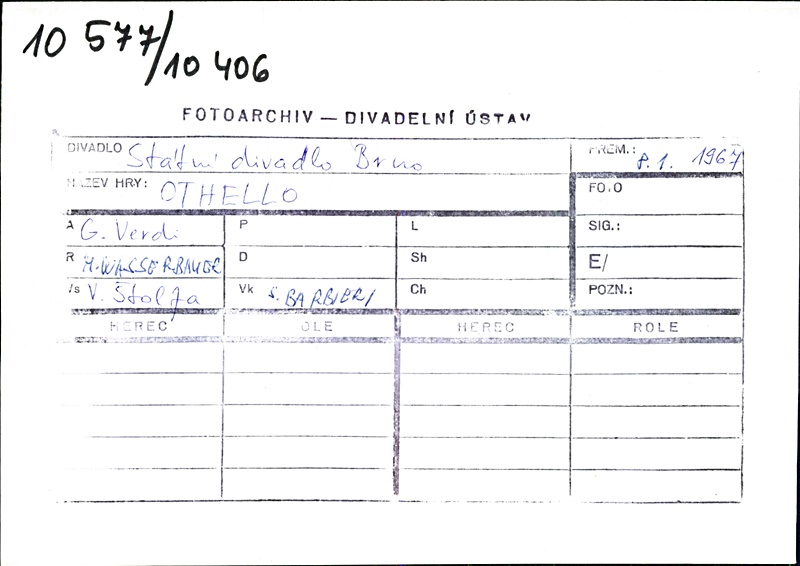 10 577/10 406
FOTOARCHIV — DIVADELNÍ ÚSTAV
DIVADLO Státní divadlo Brno PREM.: 8. 1. 1967
NÁZEV HRY: OTHELLO FOTO
A G. Verdi P L SIG.:
R M. WASSERBAUER D Sh E/
Vs V. Štolfa Vk S. BARBIERI Ch POZN.:
HEREC ROLE HEREC ROLE